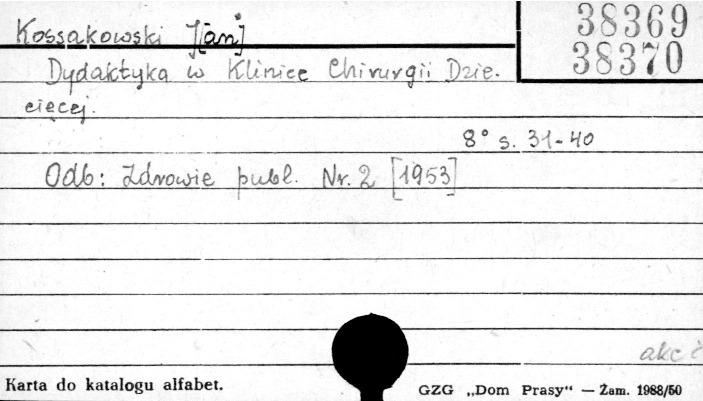 Kossakowski J[an]
38369
38370
Dydaktyka w Klinice Chirurgii Dzie.
cięcej.
8° s. 31-40
Odb: Zdrowie publ. Nr. 2 [1953]
Karta do katalogu alfabet.
GZG „Dom Prasy“ — Żam. 1988/50